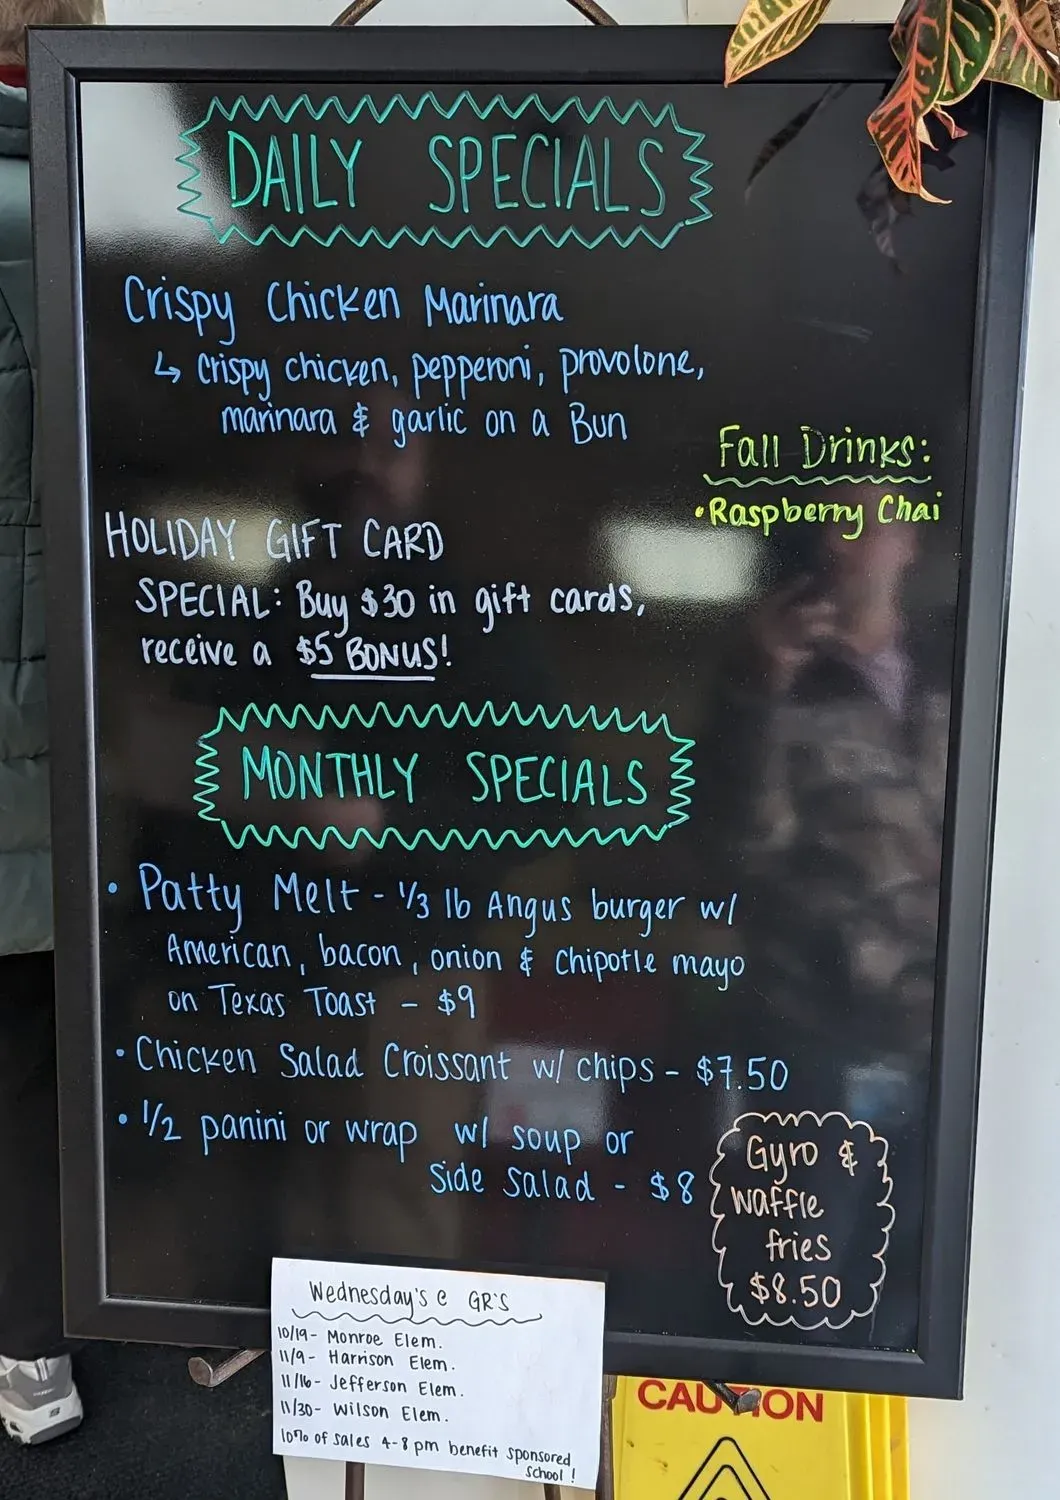 DAILY SPECIALS
Crispy Chicken Marinara
↳ crispy chicken, pepperoni, provolone,
marinara & garlic on a Bun
Fall Drinks:
• Raspberry Chai
HOLIDAY GIFT CARD
SPECIAL: Buy $30 in gift cards,
receive a $5 BONUS!
MONTHLY SPECIALS
• Patty Melt - 1/3 lb Angus burger w/
American, bacon, onion & chipotle mayo
on Texas Toast - $9
• Chicken Salad Croissant w/ chips - $7.50
• 1/2 panini or wrap w/ soup or
side salad - $8
Gyro &
waffle
fries
$8.50
Wednesday's @ GR'S
10/19- Monroe Elem.
11/9- Harrison Elem.
11/16- Jefferson Elem.
11/30- Wilson Elem.
10% of sales 4-8 pm benefit sponsored
school!
CAUTION